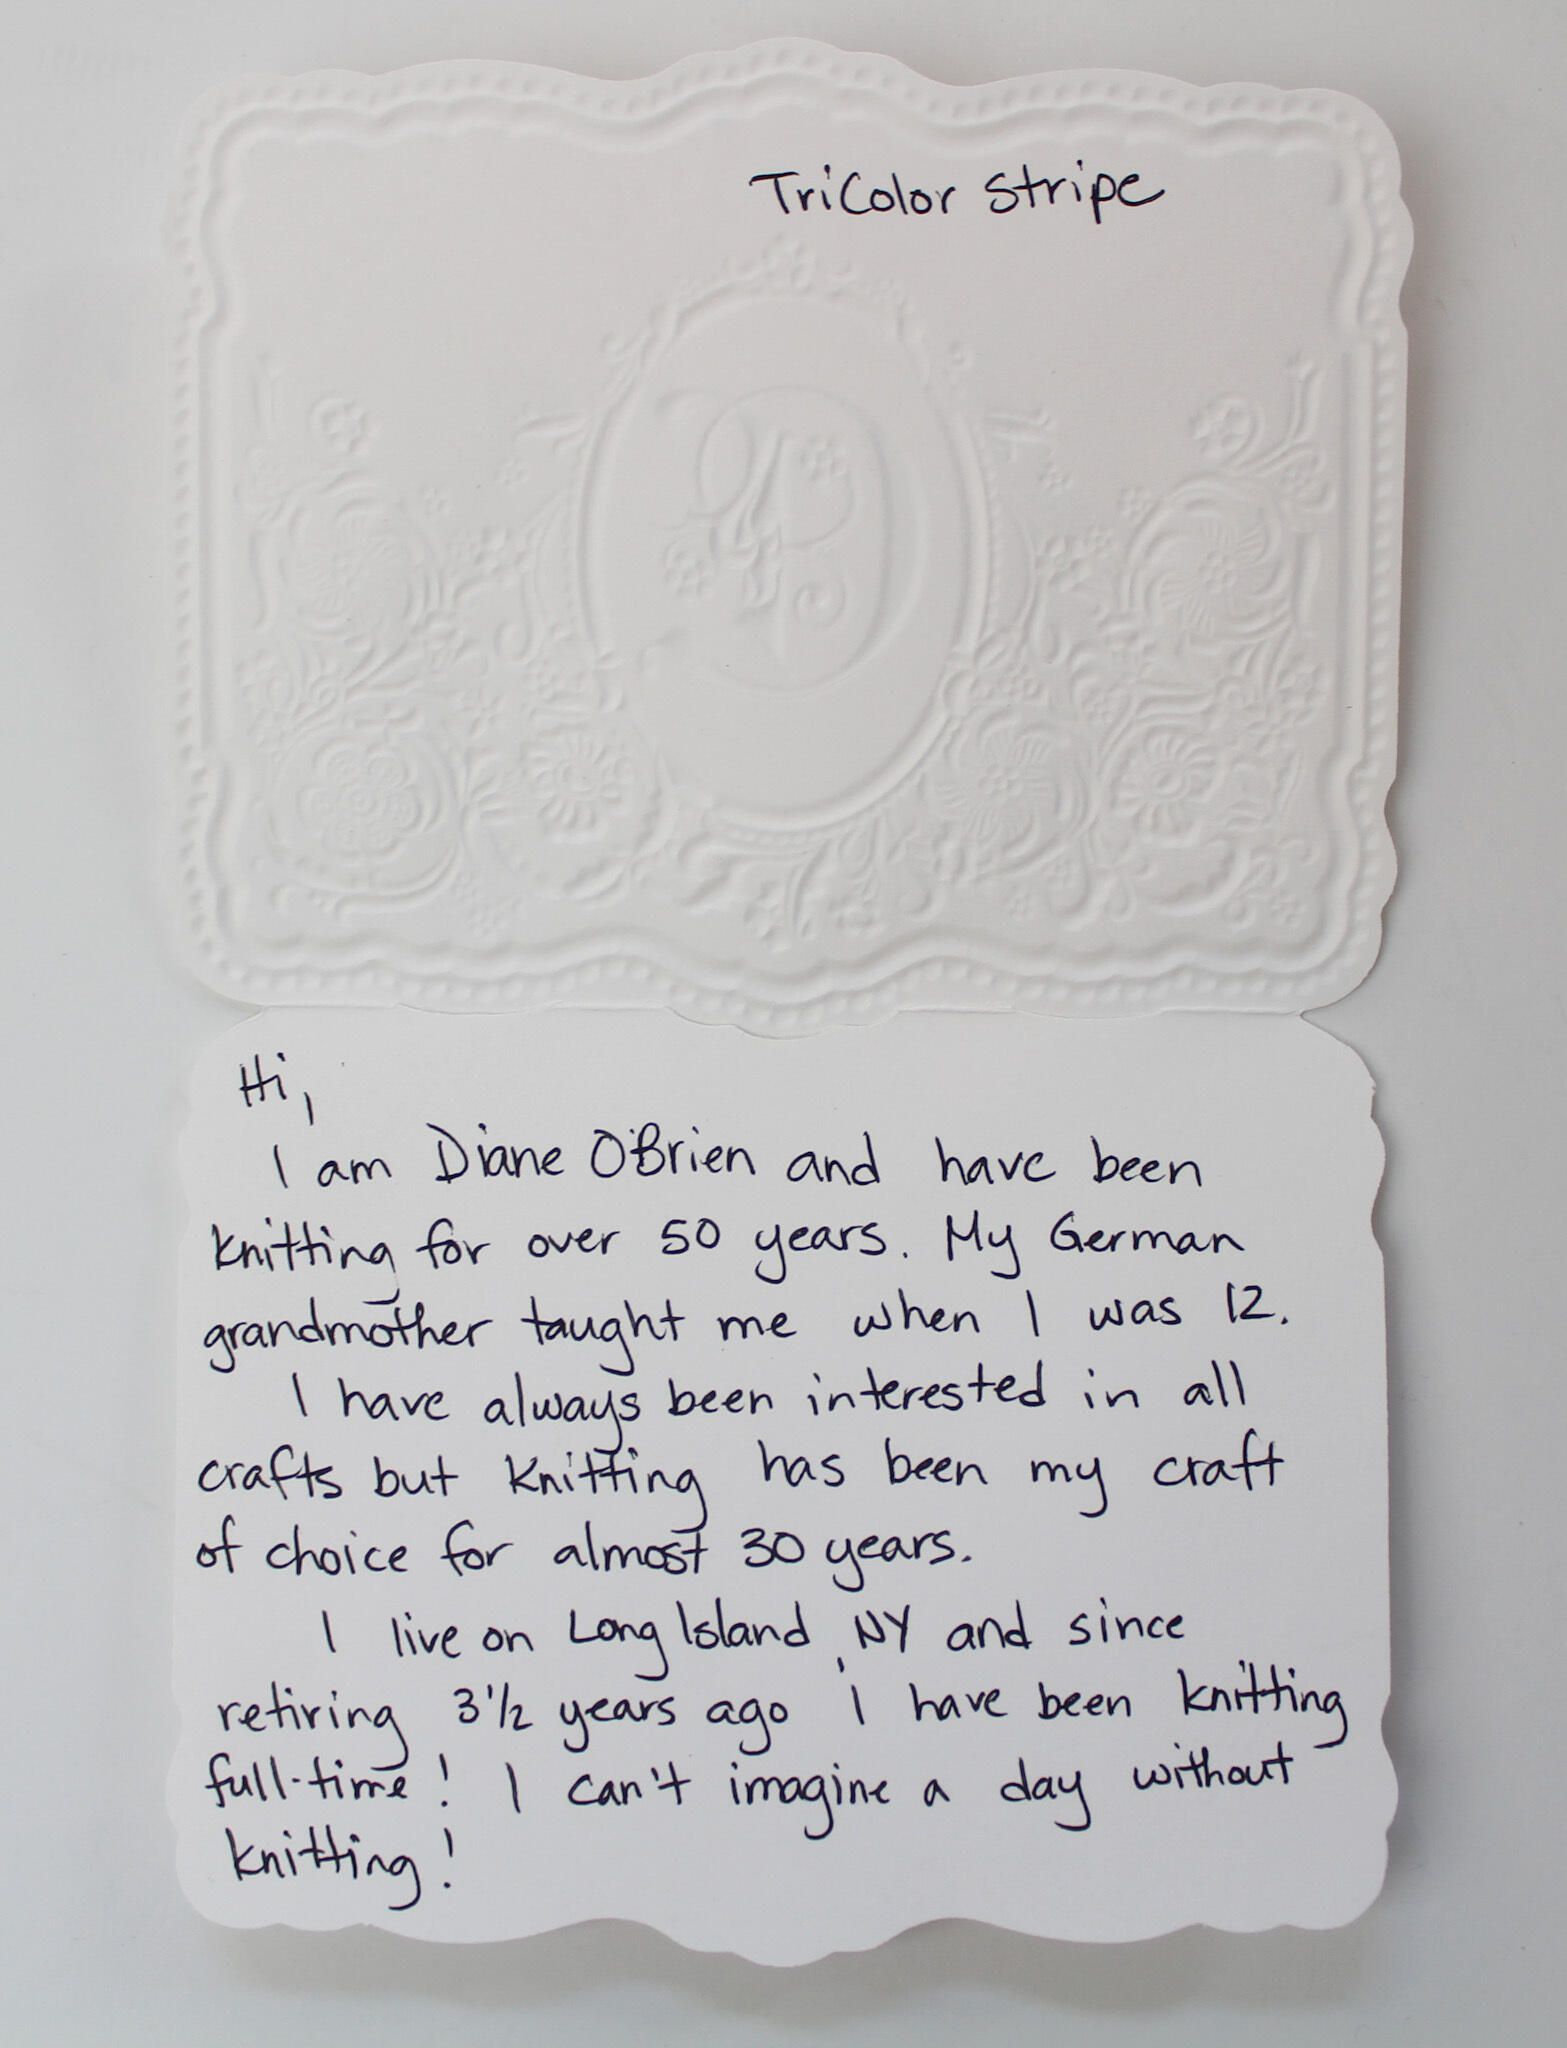 TriColor Stripe
Hi,
I am Diane O'Brien and have been
knitting for over 50 years. My German
grandmother taught me when I was 12.
I have always been interested in all
crafts but knitting has been my craft
of choice for almost 30 years.
I live on Long Island, NY and since
retiring 3 1/2 years ago i have been knitting
full-time! I can't imagine a day without
knitting!